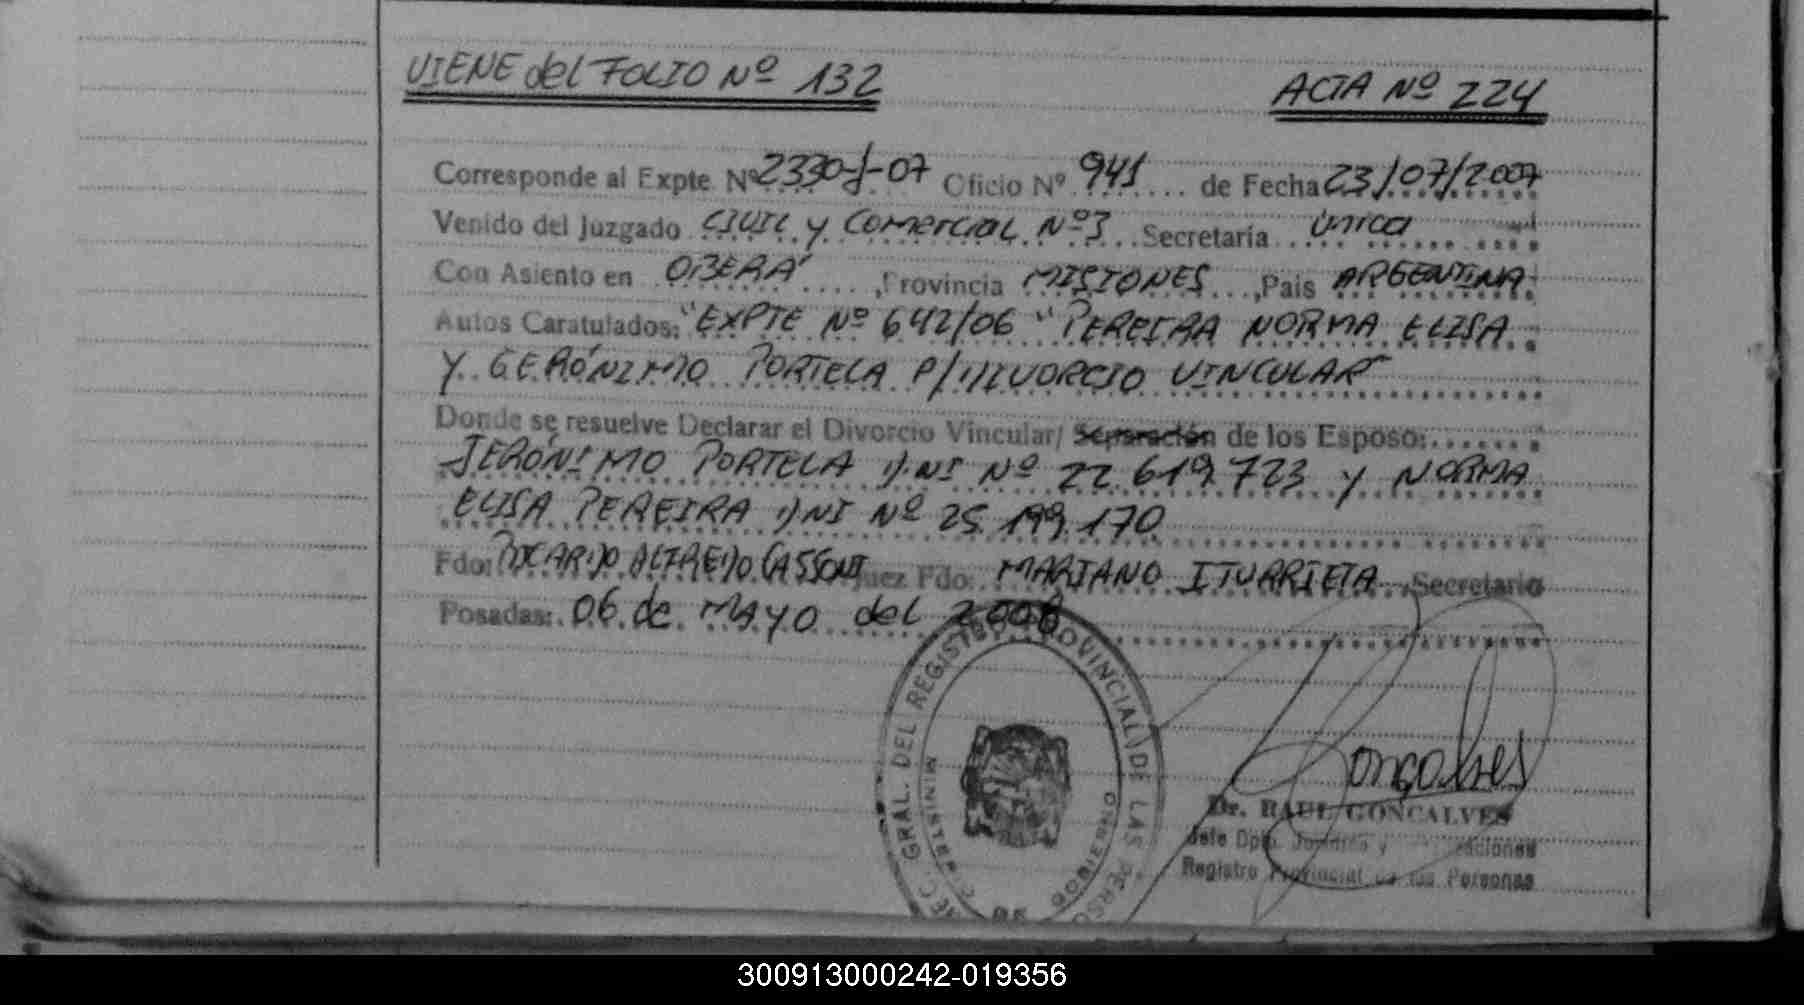 VIENE del FOLIO Nº 132
ACTA Nº 224
Corresponde al Expte. Nº 2330-J-07 Oficio Nº 941 de Fecha 23/07/2007
Venido del Juzgado CIVIL y Comercial Nº3 Secretaría única
Con Asiento en OBERÁ, Provincia MISIONES, País ARGENTINA
Autos Caratulados: "EXPTE Nº 642/06 "PEREIRA NORMA ELISA
Y GERÓNIMO PORTELA P/DIVORCIO VINCULAR
Donde se resuelve Declarar el Divorcio Vincular/ Separación de los Esposo:
JERÓNIMO PORTELA DNI Nº 22.619.723 y NORMA
ELISA PEREIRA DNI Nº 25.199.170
Fdo: RICARDO ALFREDO CASSONI Juez Fdo: MARIANO ITURRIETA, Secretario
Posadas: 06 de MAYO del 2008
GRAL. DEL REGISTRO PROVINCIAL DE LAS PERSO
MINISTERIO DE GOBIERNO
Goncalves
Dr. RAUL GONCALVES
Jefe Dpto. Jurídico y
Registro Provincial de las Personas
300913000242-019356